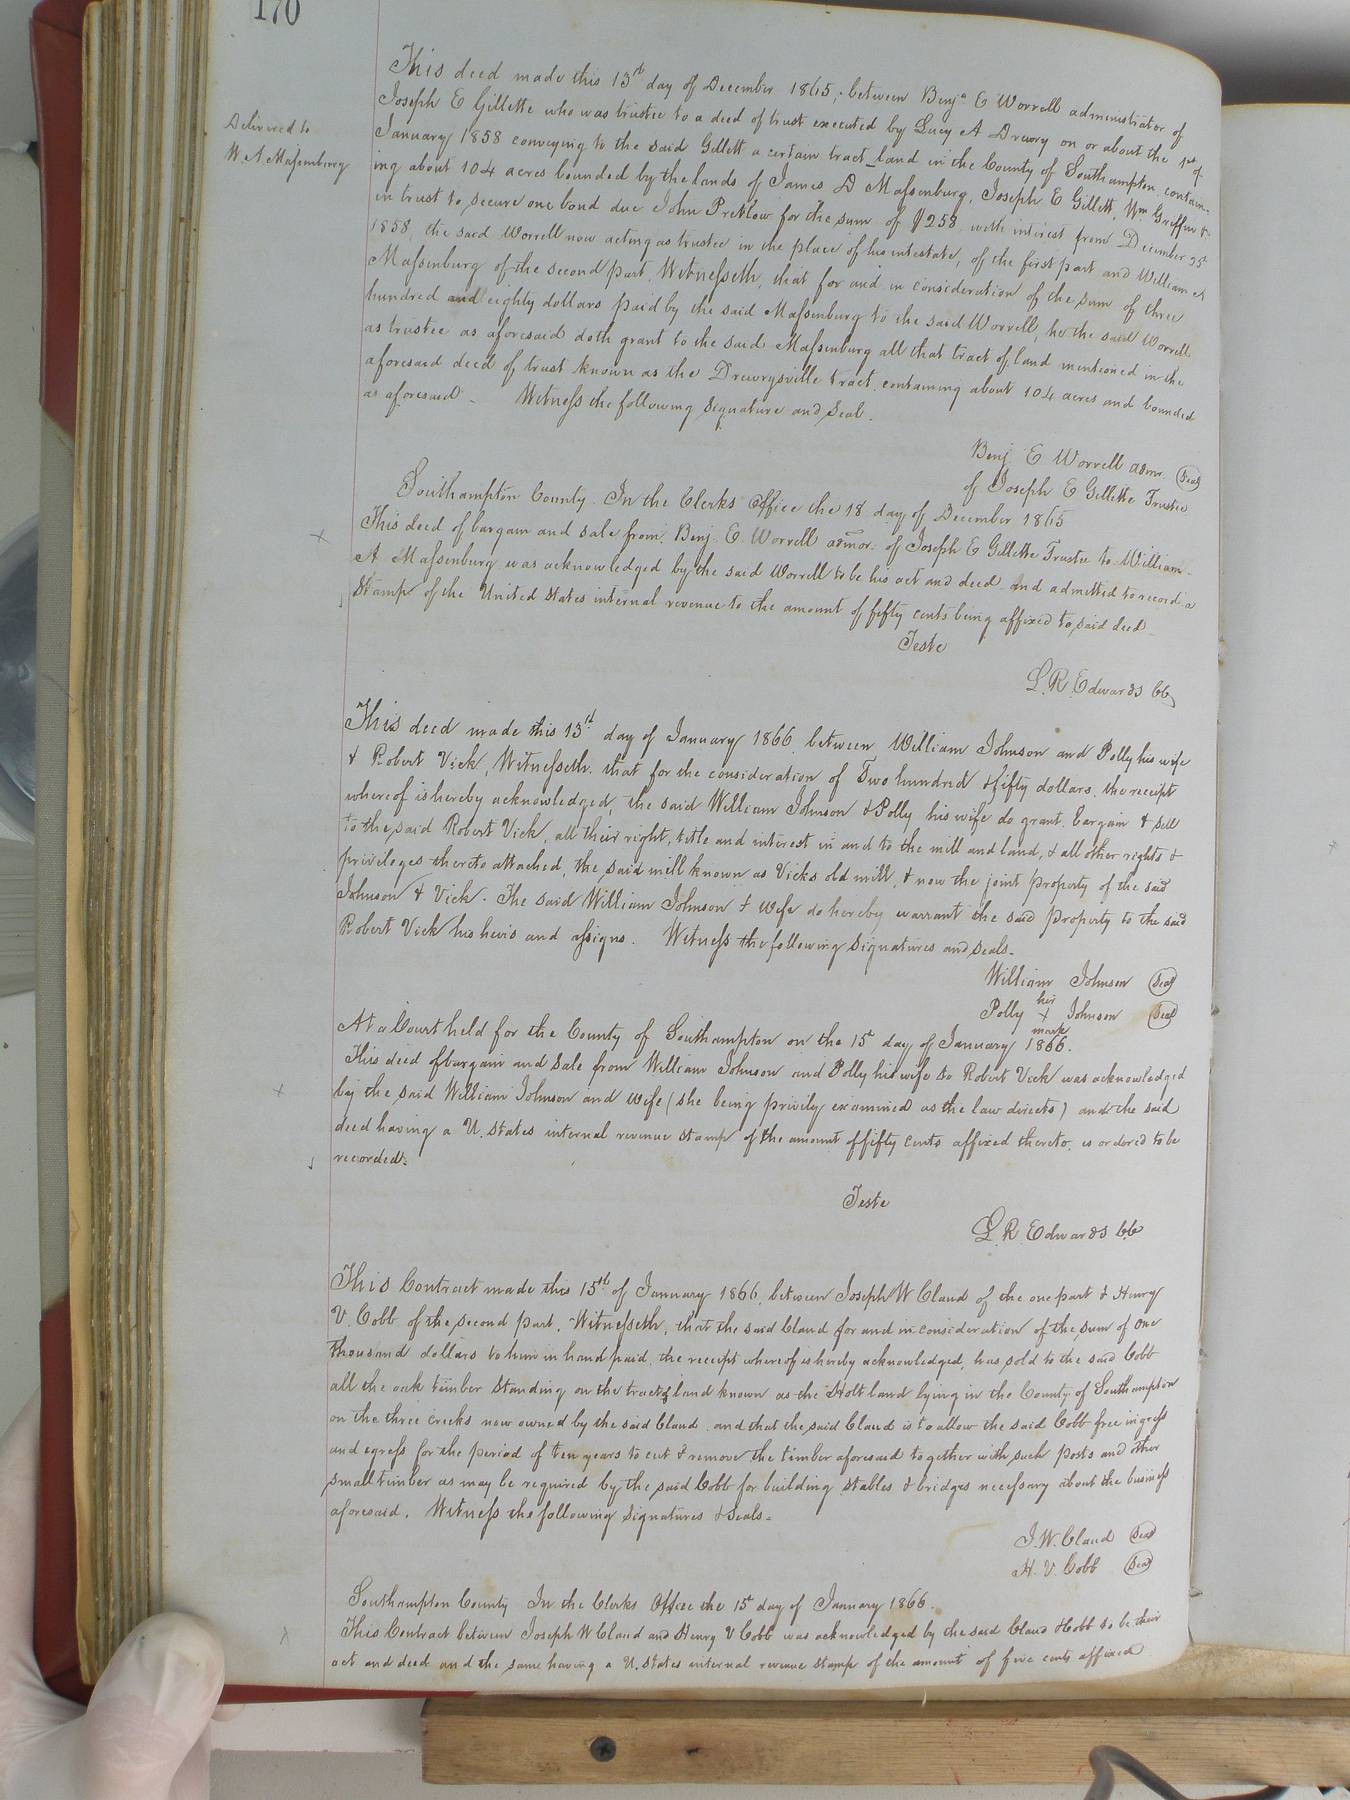 170
Delivered to
W. A. Massenburg
This deed made this 13th day of December 1865, between Benja E Worrell administrator of
Joseph E Gillette who was trustee to a deed of trust executed by Lucy A Drewry on or about the 1st of
January 1858 conveying to the said Gillett a certain tract land in the County of Southampton contain-
ing about 104 acres bounded by the lands of James D Massenburg, Joseph E Gillett, Wm Griffin &
in trust to secure one bond due John Pretlow for the sum of $258 with interest from December 25
1858, the said Worrell now acting as trustee in the place of his intestate, of the first part and William A
Massenburg of the second part, Witnesseth, that for and in consideration of the sum of three
hundred and eighty dollars paid by the said Massenburg to the said Worrell, he the said Worrell
as trustee as aforesaid doth grant to the said Massenburg all that tract of land mentioned in the
aforesaid deed of trust known as the Drewrysville tract, containing about 104 acres and bounded
as aforesaid. Witness the following signature and seal.
Benj. E Worrell admr. Seal
of Joseph E Gillette Trustee
Southampton County. In the Clerks Office the 18 day of December 1865
This deed of bargain and sale from Benj. E. Worrell admor. of Joseph E Gillette Trustee to William
A Massenburg was acknowledged by the said Worrell to be his act and deed and admitted to record a
Stamp of the United States internal revenue to the amount of fifty cents being affixed to said deed
Teste
L. R. Edwards CC
This deed made this 13th day of January 1866, between William Johnson and Polly his wife
& Robert Vick, Witnesseth, that for the consideration of Two hundred & fifty dollars, the receipt
whereof is hereby acknowledged, the said William Johnson & Polly his wife do grant, bargain & sell
to the said Robert Vick, all their right, title and interest in and to the mill and land, & all other rights &
privileges thereto attached, the said mill known as Vicks old mill, & now the joint property of the said
Johnson & Vick. The said William Johnson & wife do hereby warrant the said property to the said
Robert Vick his heirs and assigns. Witness the following signatures and seals.
William Johnson Seal
her
Polly + Johnson Seal
mark
At a Court held for the County of Southampton on the 15 day of January 1866.
This deed of bargain and sale from William Johnson and Polly his wife to Robert Vick was acknowledged
by the said William Johnson and wife (she being privily examined as the law directs) and the said
deed having a U. States internal revenue stamp of the amount of fifty cents affixed thereto, is ordered to be
recorded.
Teste
L. R. Edwards CC
This Contract made this 15th of January 1866, between Joseph W Claud of the one part & Henry
V. Cobb of the second part, Witnesseth, that the said Claud for and in consideration of the sum of one
thousand dollars to him in hand paid, the receipt whereof is hereby acknowledged, has sold to the said Cobb
all the oak timber standing on the tract of land known as the Holt land lying in the County of Southampton
on the three creeks now owned by the said Claud, and that the said Claud is to allow the said Cobb free ingress
and egress for the period of ten years to cut & remove the timber aforesaid together with such posts and other
small timber as may be required by the said Cobb for building stables & bridges necessary about the business
aforesaid. Witness the following signatures & seals.
J. W. Claud Seal
H. V. Cobb Seal
Southampton County In the Clerks Office the 15 day of January 1866.
This Contract between Joseph W Claud and Henry V Cobb was acknowledged by the said Claud & Cobb to be their
act and deed and the same having a U. States internal revenue stamp of the amount of five cents affixed